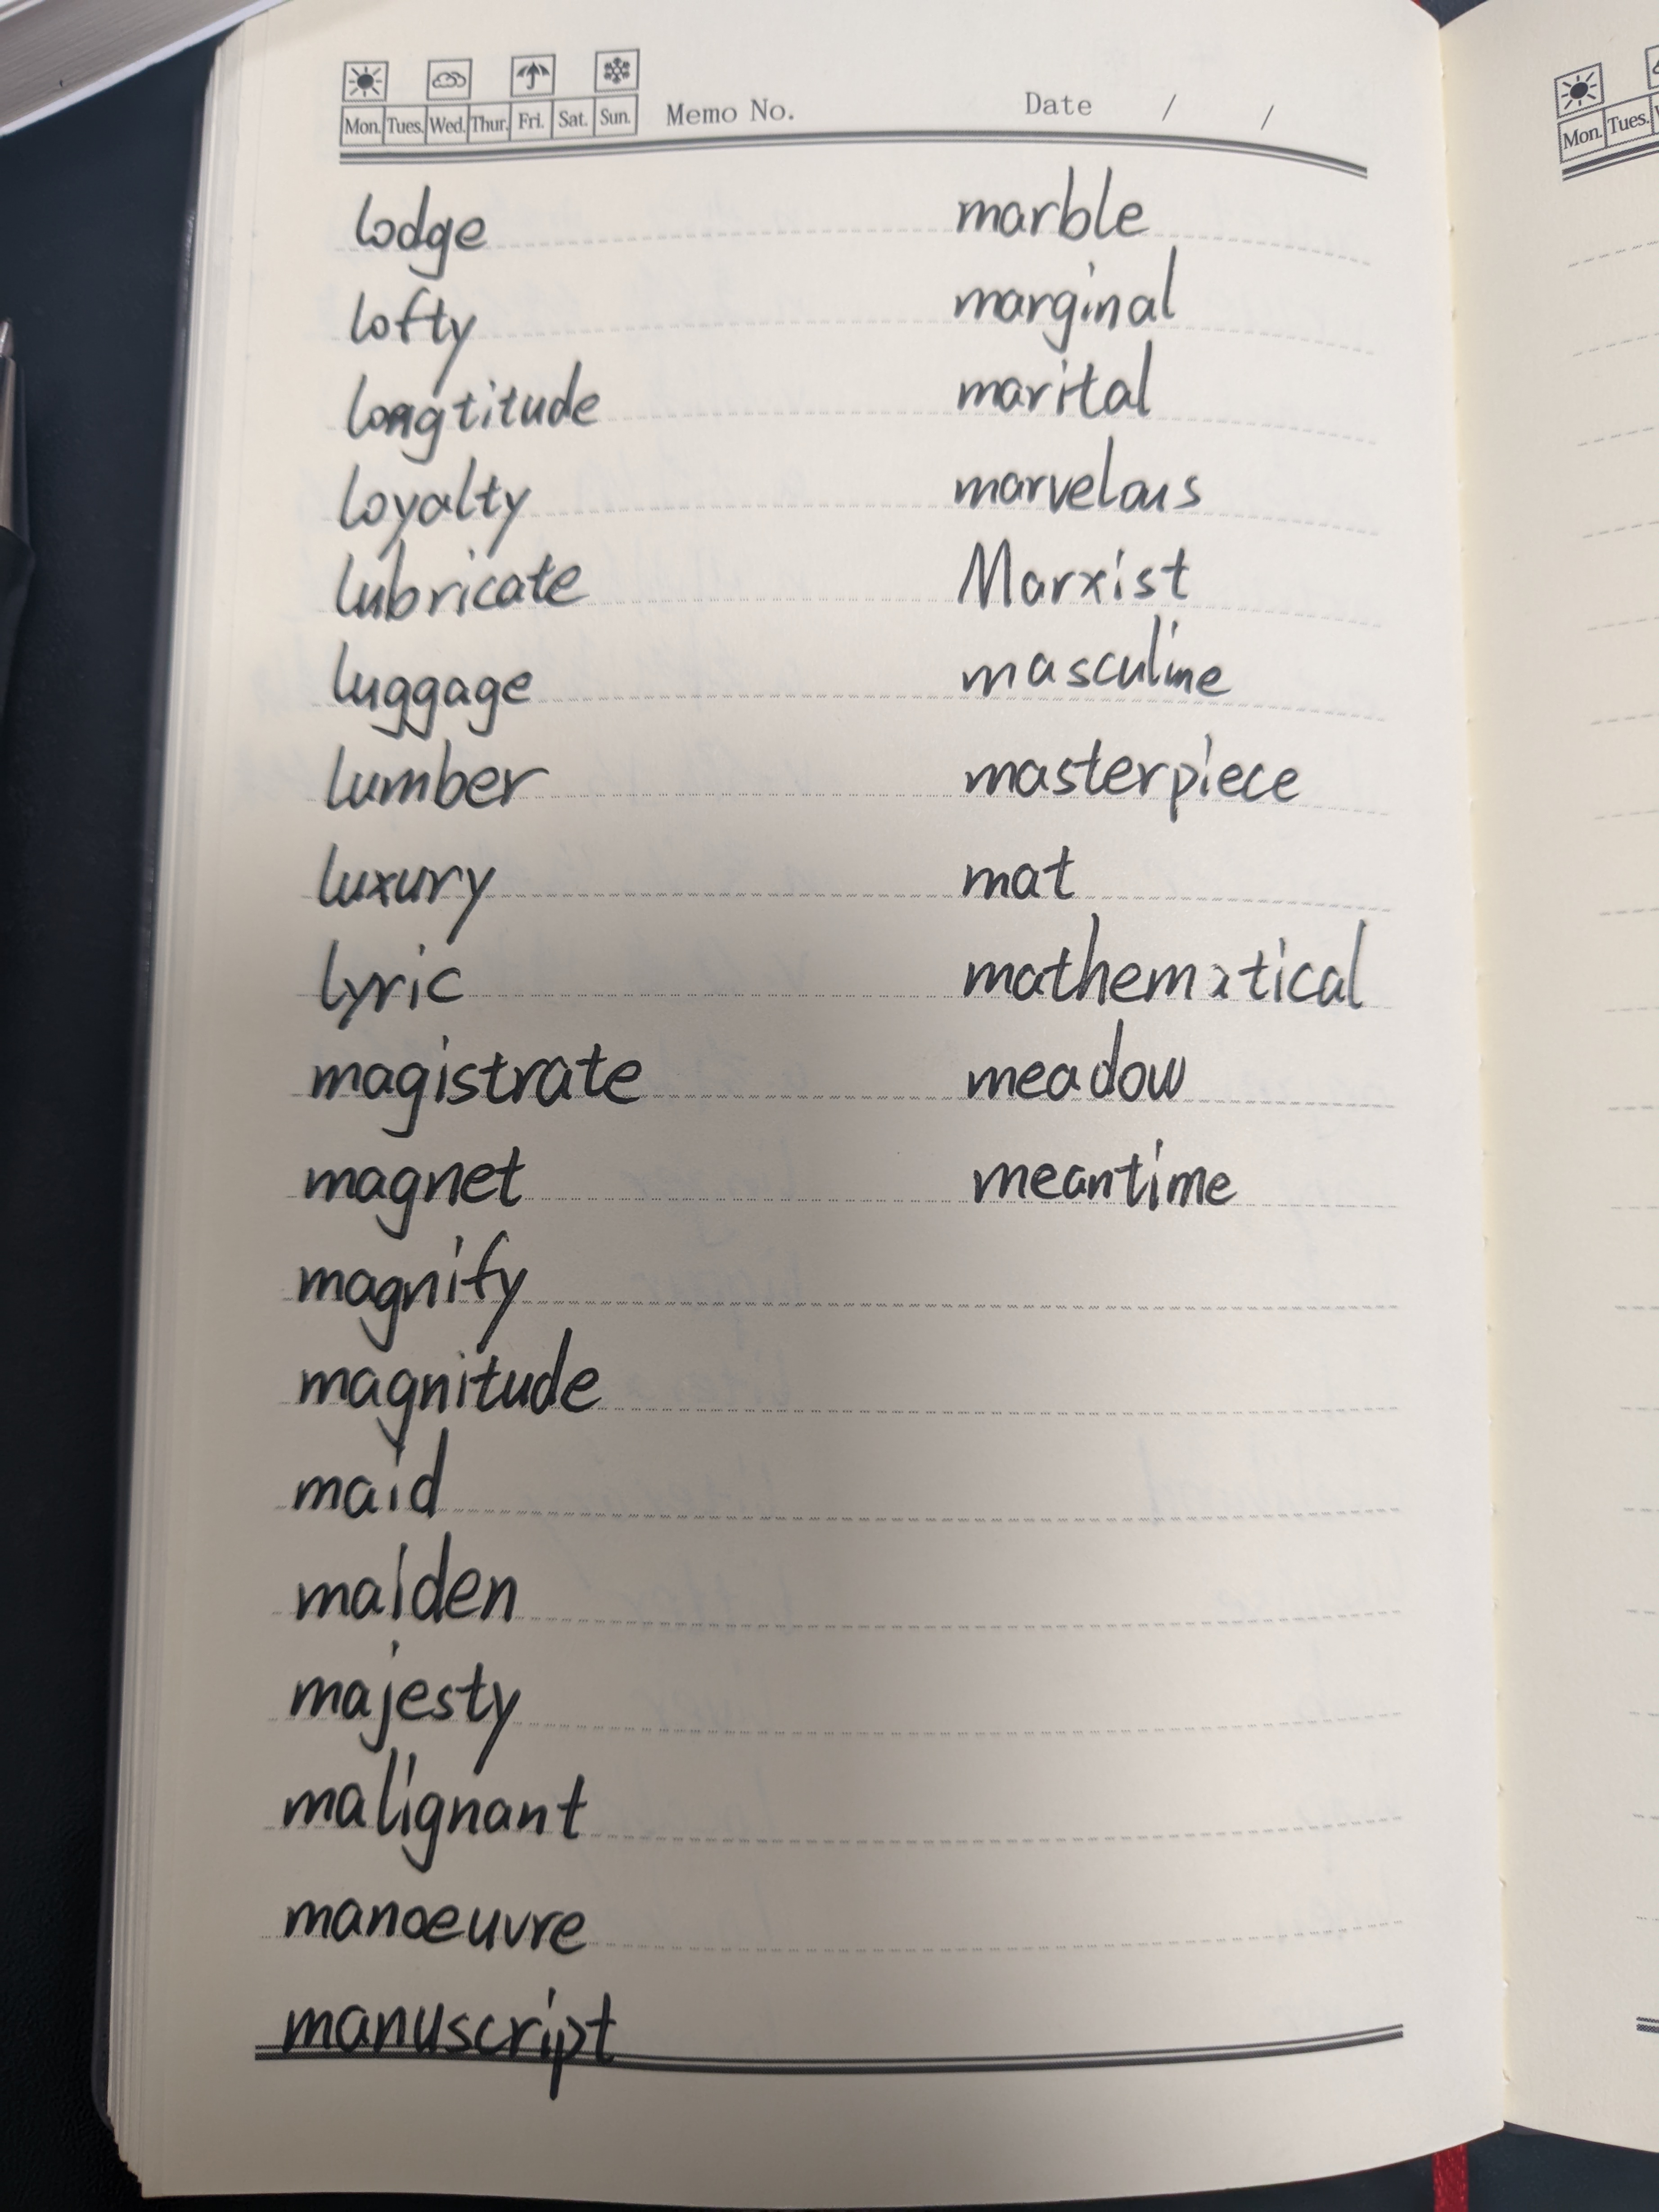 Mon. Tues. Wed. Thur. Fri. Sat. Sun. Memo No. Date / /
lodge
lofty
longtitude
loyalty
lubricate
luggage
lumber
luxury
lyric
magistrate
magnet
magnify
magnitude
maid
maiden
majesty
malignant
manoeuvre
manuscript
marble
marginal
marital
marvelous
Marxist
masculine
masterpiece
mat
mathematical
meadow
meantime
Mon. Tues.